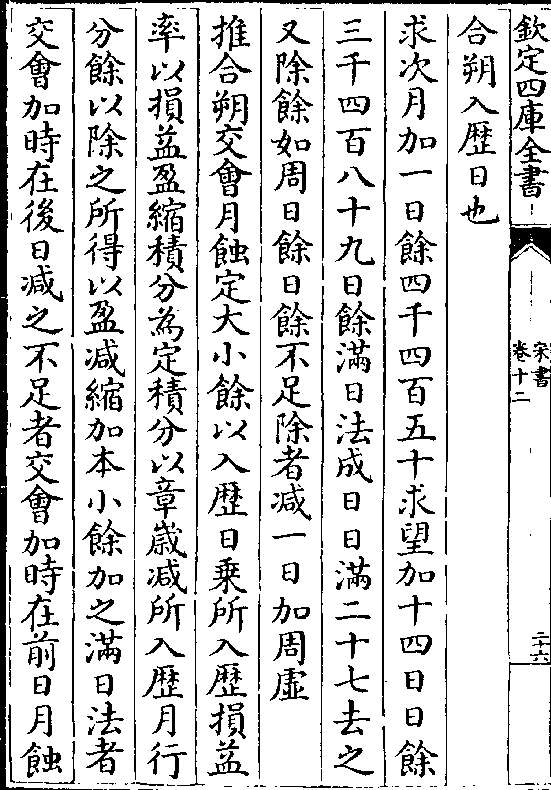 欽定四庫全書
宋書
卷十二
二十六
合朔入歴日也
求次月加一日餘四千四百五十求望加十四日日餘
三千四百八十九日餘滿日法成日日滿二十七去之
又除餘如周日餘日餘不足除者減一日加周虛
推合朔交會月蝕定大小餘以入歴日乗所入歴損益
率以損益盈縮積分為定積分以章歲减所入歴月行
分餘以除之所得以盈减縮加本小餘加之滿日法者
交會加時在後日减之不足者交會加時在前日月蝕